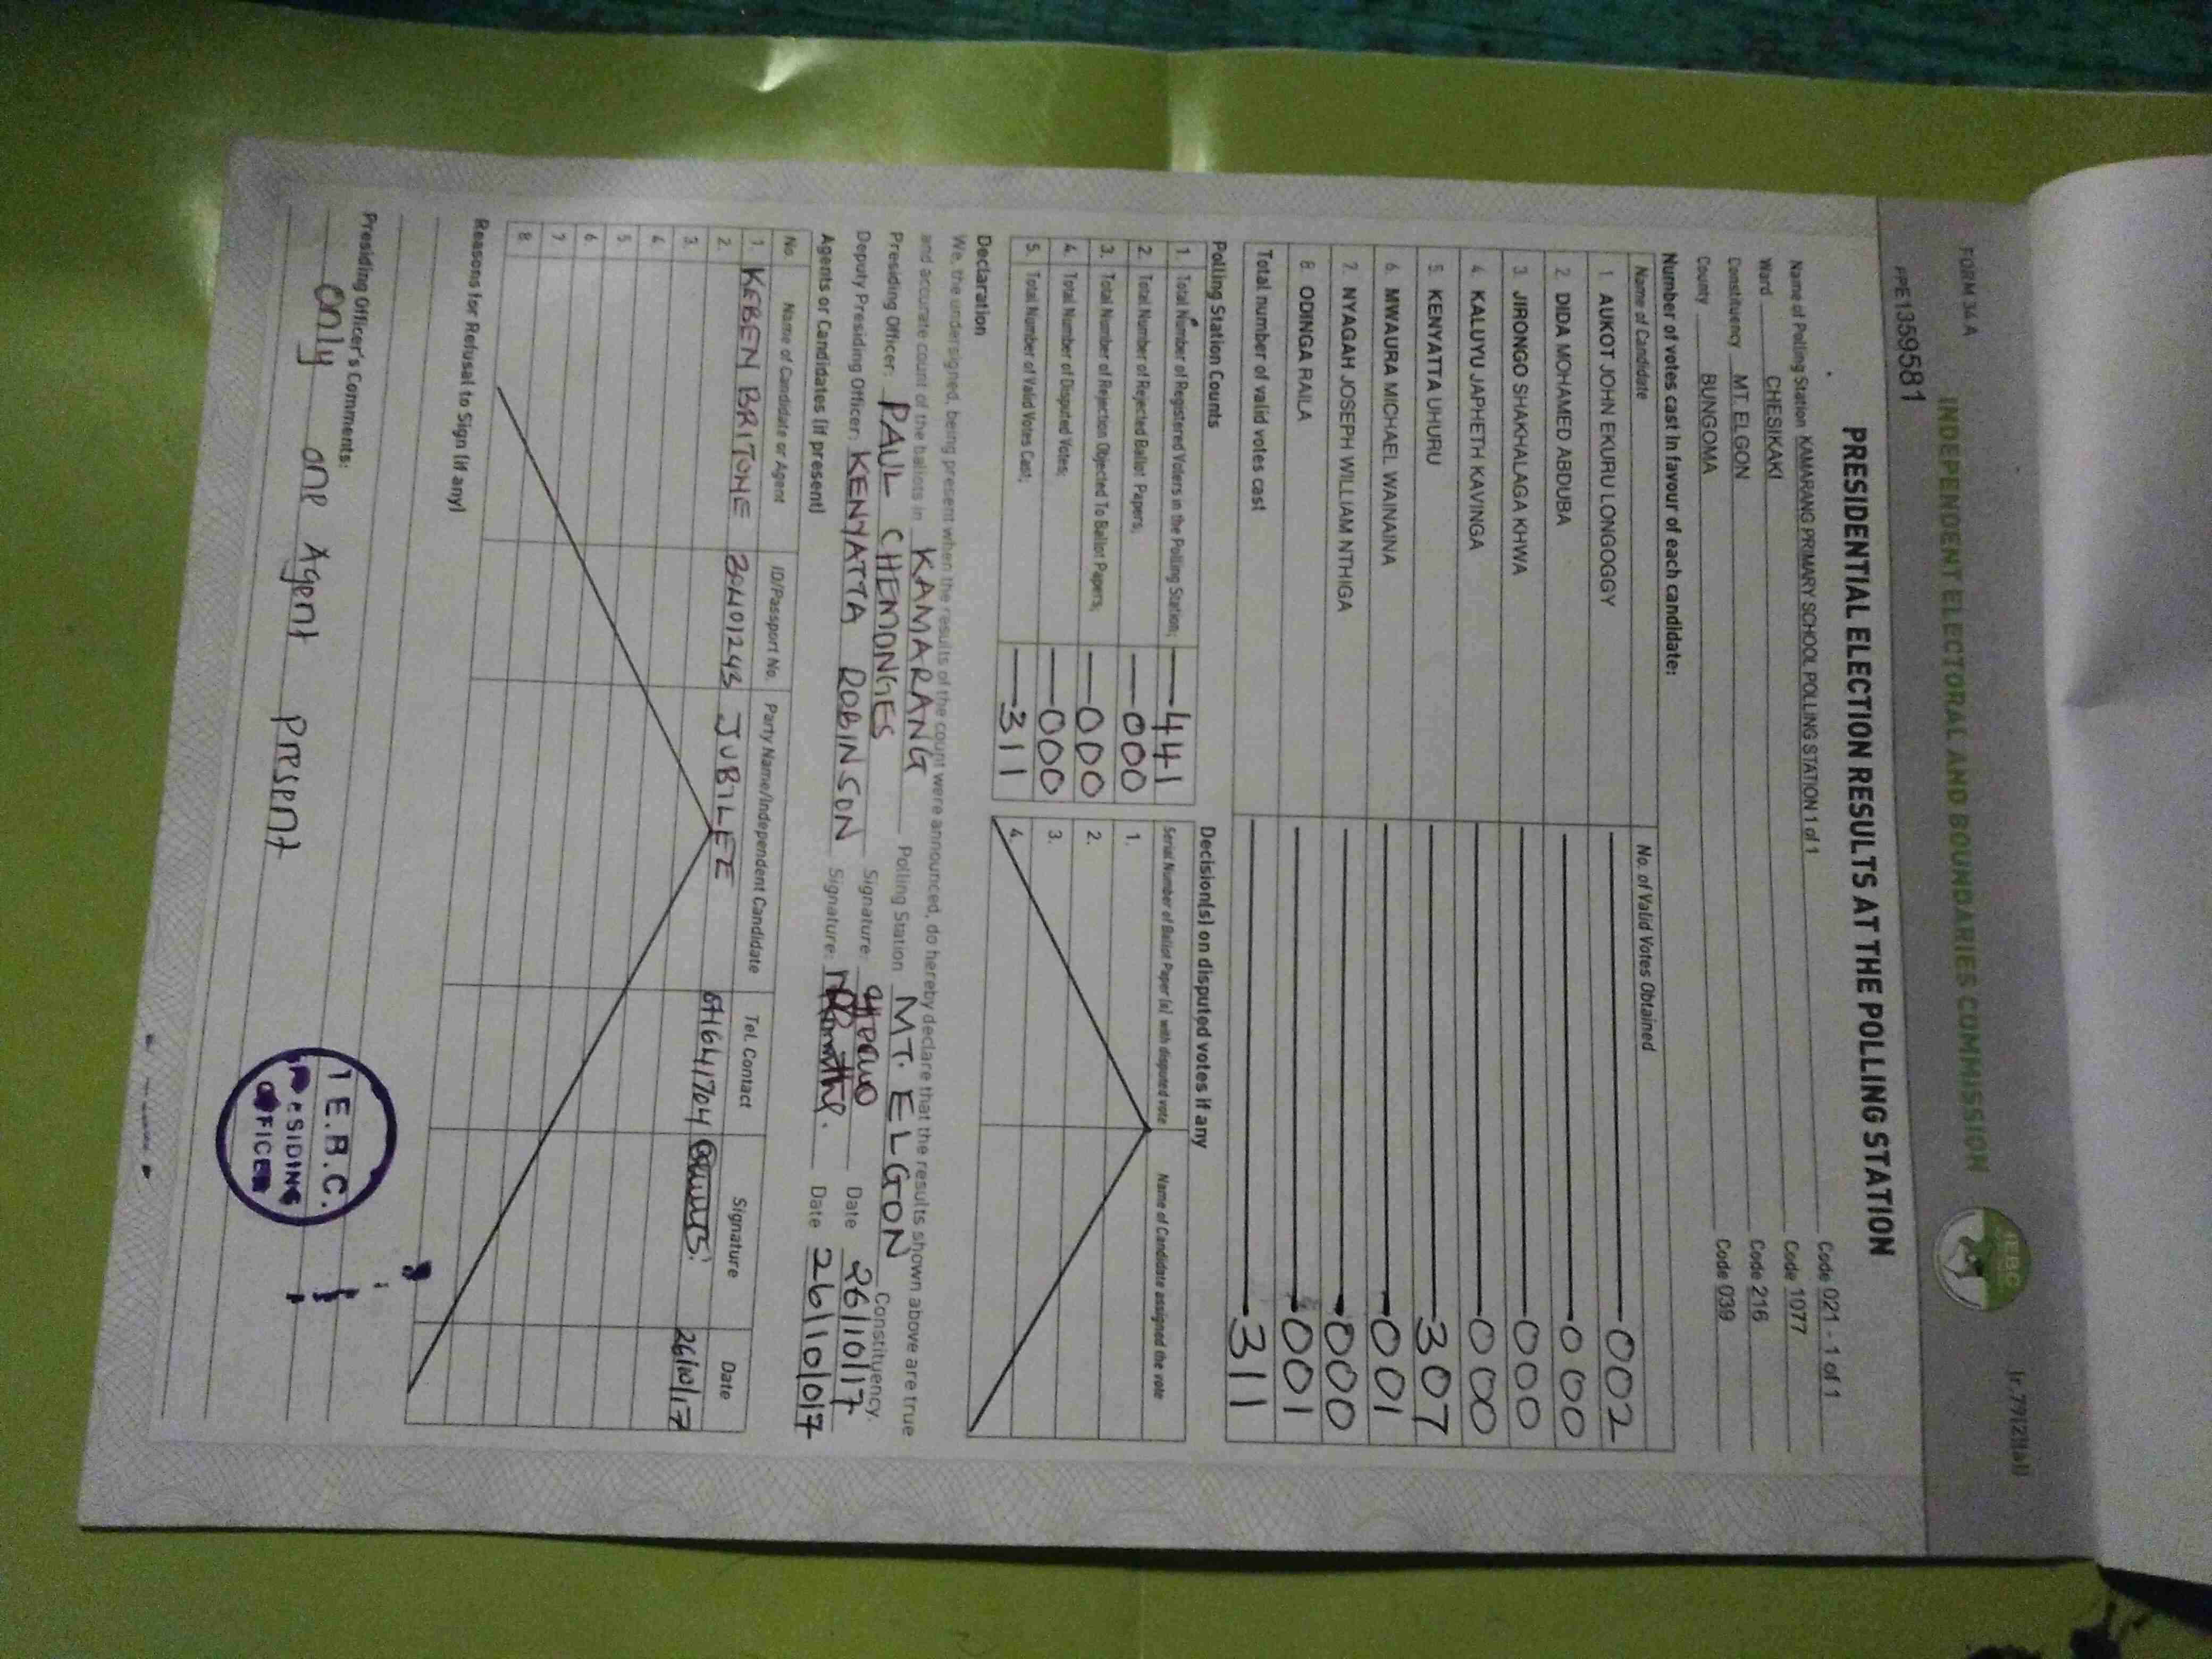 FORM 34 A
(r.79(2)(a))
INDEPENDENT ELECTORAL AND BOUNDARIES COMMISSION
IEBC
PPE1359581
PRESIDENTIAL ELECTION RESULTS AT THE POLLING STATION
Name of Polling Station KAMARANG PRIMARY SCHOOL POLLING STATION 1 of 1 Code 021 - 1 of 1
Ward CHESIKAKI Code 1077
Constituency MT. ELGON Code 216
County BUNGOMA Code 039
Number of votes cast in favour of each candidate:
Name of Candidate No. of Valid Votes Obtained
1. AUKOT JOHN EKURU LONGOGGY 002
2. DIDA MOHAMED ABDUBA 000
3. JIRONGO SHAKHALAGA KHWA 000
4. KALUYU JAPHETH KAVINGA 000
5. KENYATTA UHURU 307
6. MWAURA MICHAEL WAINAINA 001
7. NYAGAH JOSEPH WILLIAM NTHIGA 000
8. ODINGA RAILA 001
Total number of valid votes cast 311
Polling Station Counts
1. Total Number of Registered Voters in the Polling Station; 441
2. Total Number of Rejected Ballot Papers; 000
3. Total Number of Rejection Objected To Ballot Papers; 000
4. Total Number of Disputed Votes; 000
5. Total Number of Valid Votes Cast; 311
Decision(s) on disputed votes if any
Serial Number of Ballot Paper (s) with disputed vote Name of Candidate assigned the vote
1.
2.
3.
4.
Declaration
We, the undersigned, being present when the results of the count were announced, do hereby declare that the results shown above are true
and accurate count of the ballots in KAMARANG Polling Station MT. ELGON Constituency.
Presiding Officer: PAUL CHEMONGES Signature: Date 26/10/17
Deputy Presiding Officer: KENYATTA ROBINSON Signature: Date 26/10/017
Agents or Candidates (if present)
No. Name of Candidate or Agent ID/Passport No. Party Name/Independent Candidate Tel. Contact Signature Date
1. KEBEN BRITONE 30401243 JUBILEE 0716441704 26/10/17
2.
3.
4.
5.
6.
7.
8.
Reasons for Refusal to Sign (if any)
Presiding Officer's Comments:
Only one Agent present
I.E.B.C.
PRESIDING
OFFICER